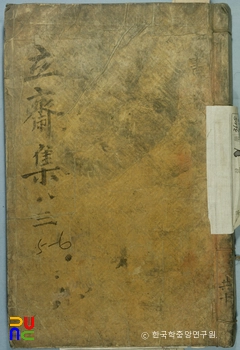 立齋集 八 三
5-6
ⓒ 한국학중앙연구원